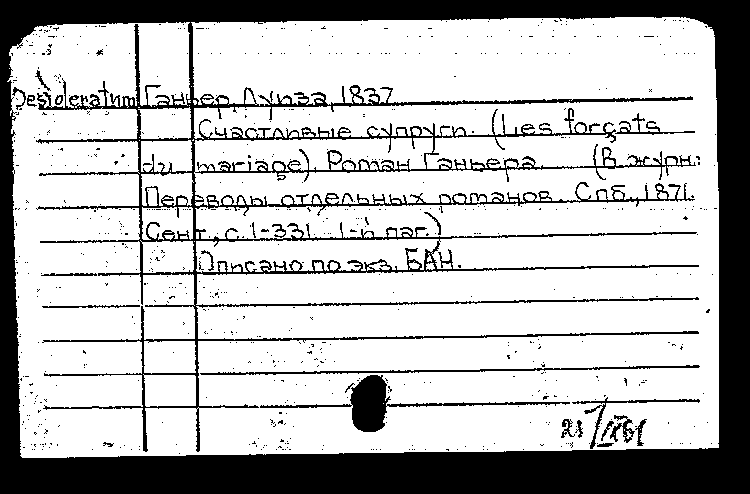 Desideratum Ганьер, Луиза, 1837
Счастливые супруги. (Les forçats
du mariage). Роман Ганьера. (В журн.:
Переводы отдельных романов. Спб., 1871.
Сент., с. 1-331. 1-й паг.)
Описано по экз. БАН.